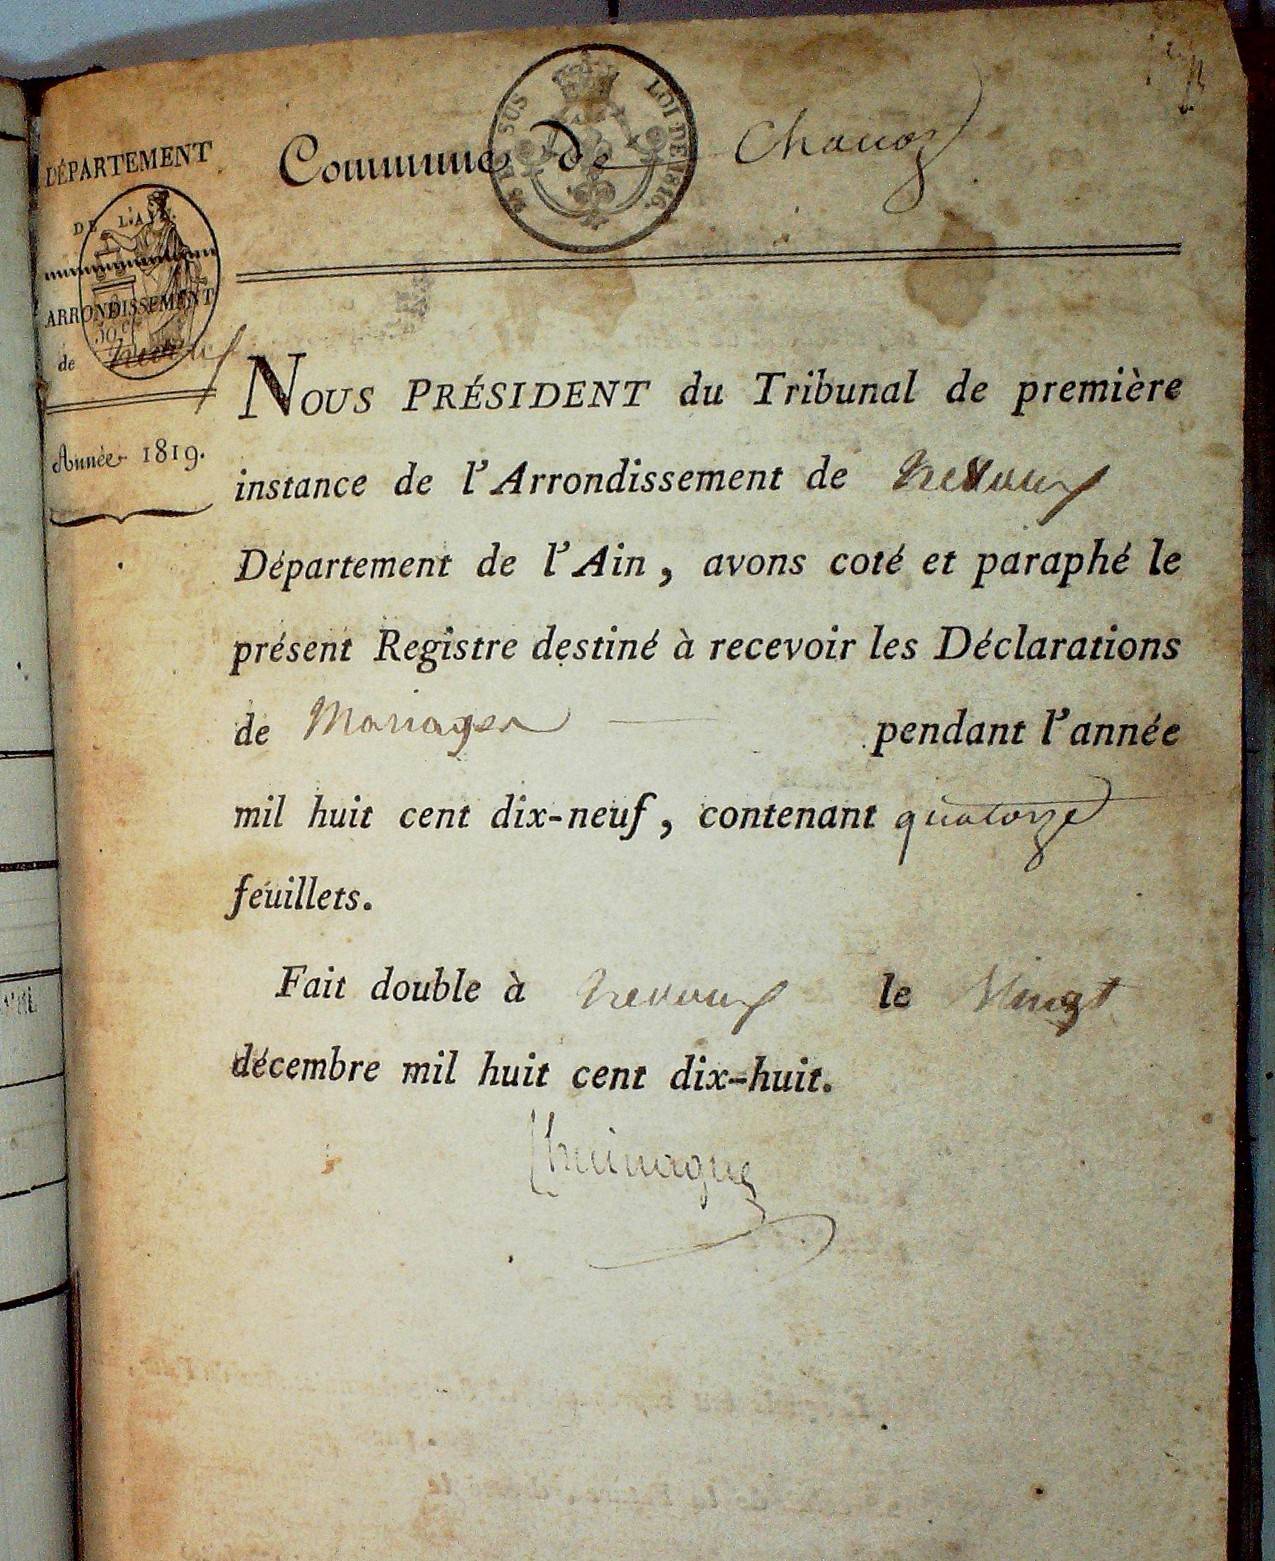 Commune de Chanoz
EN SUS
LOI DE 1816.
DÉPARTEMENT
DE L'AIN.
ARRONDISSEMENT
50 cs
de Trevoux
Année 1819.
NOUS PRÉSIDENT du Tribunal de première
instance de l'Arrondissement de Trevoux
Département de l'Ain, avons coté et paraphé le
présent Registre destiné à recevoir les Déclarations
de Mariages pendant l'année
mil huit cent dix-neuf, contenant quatorze
feuillets.
Fait double à Trevoux le Vingt
décembre mil huit cent dix-huit.